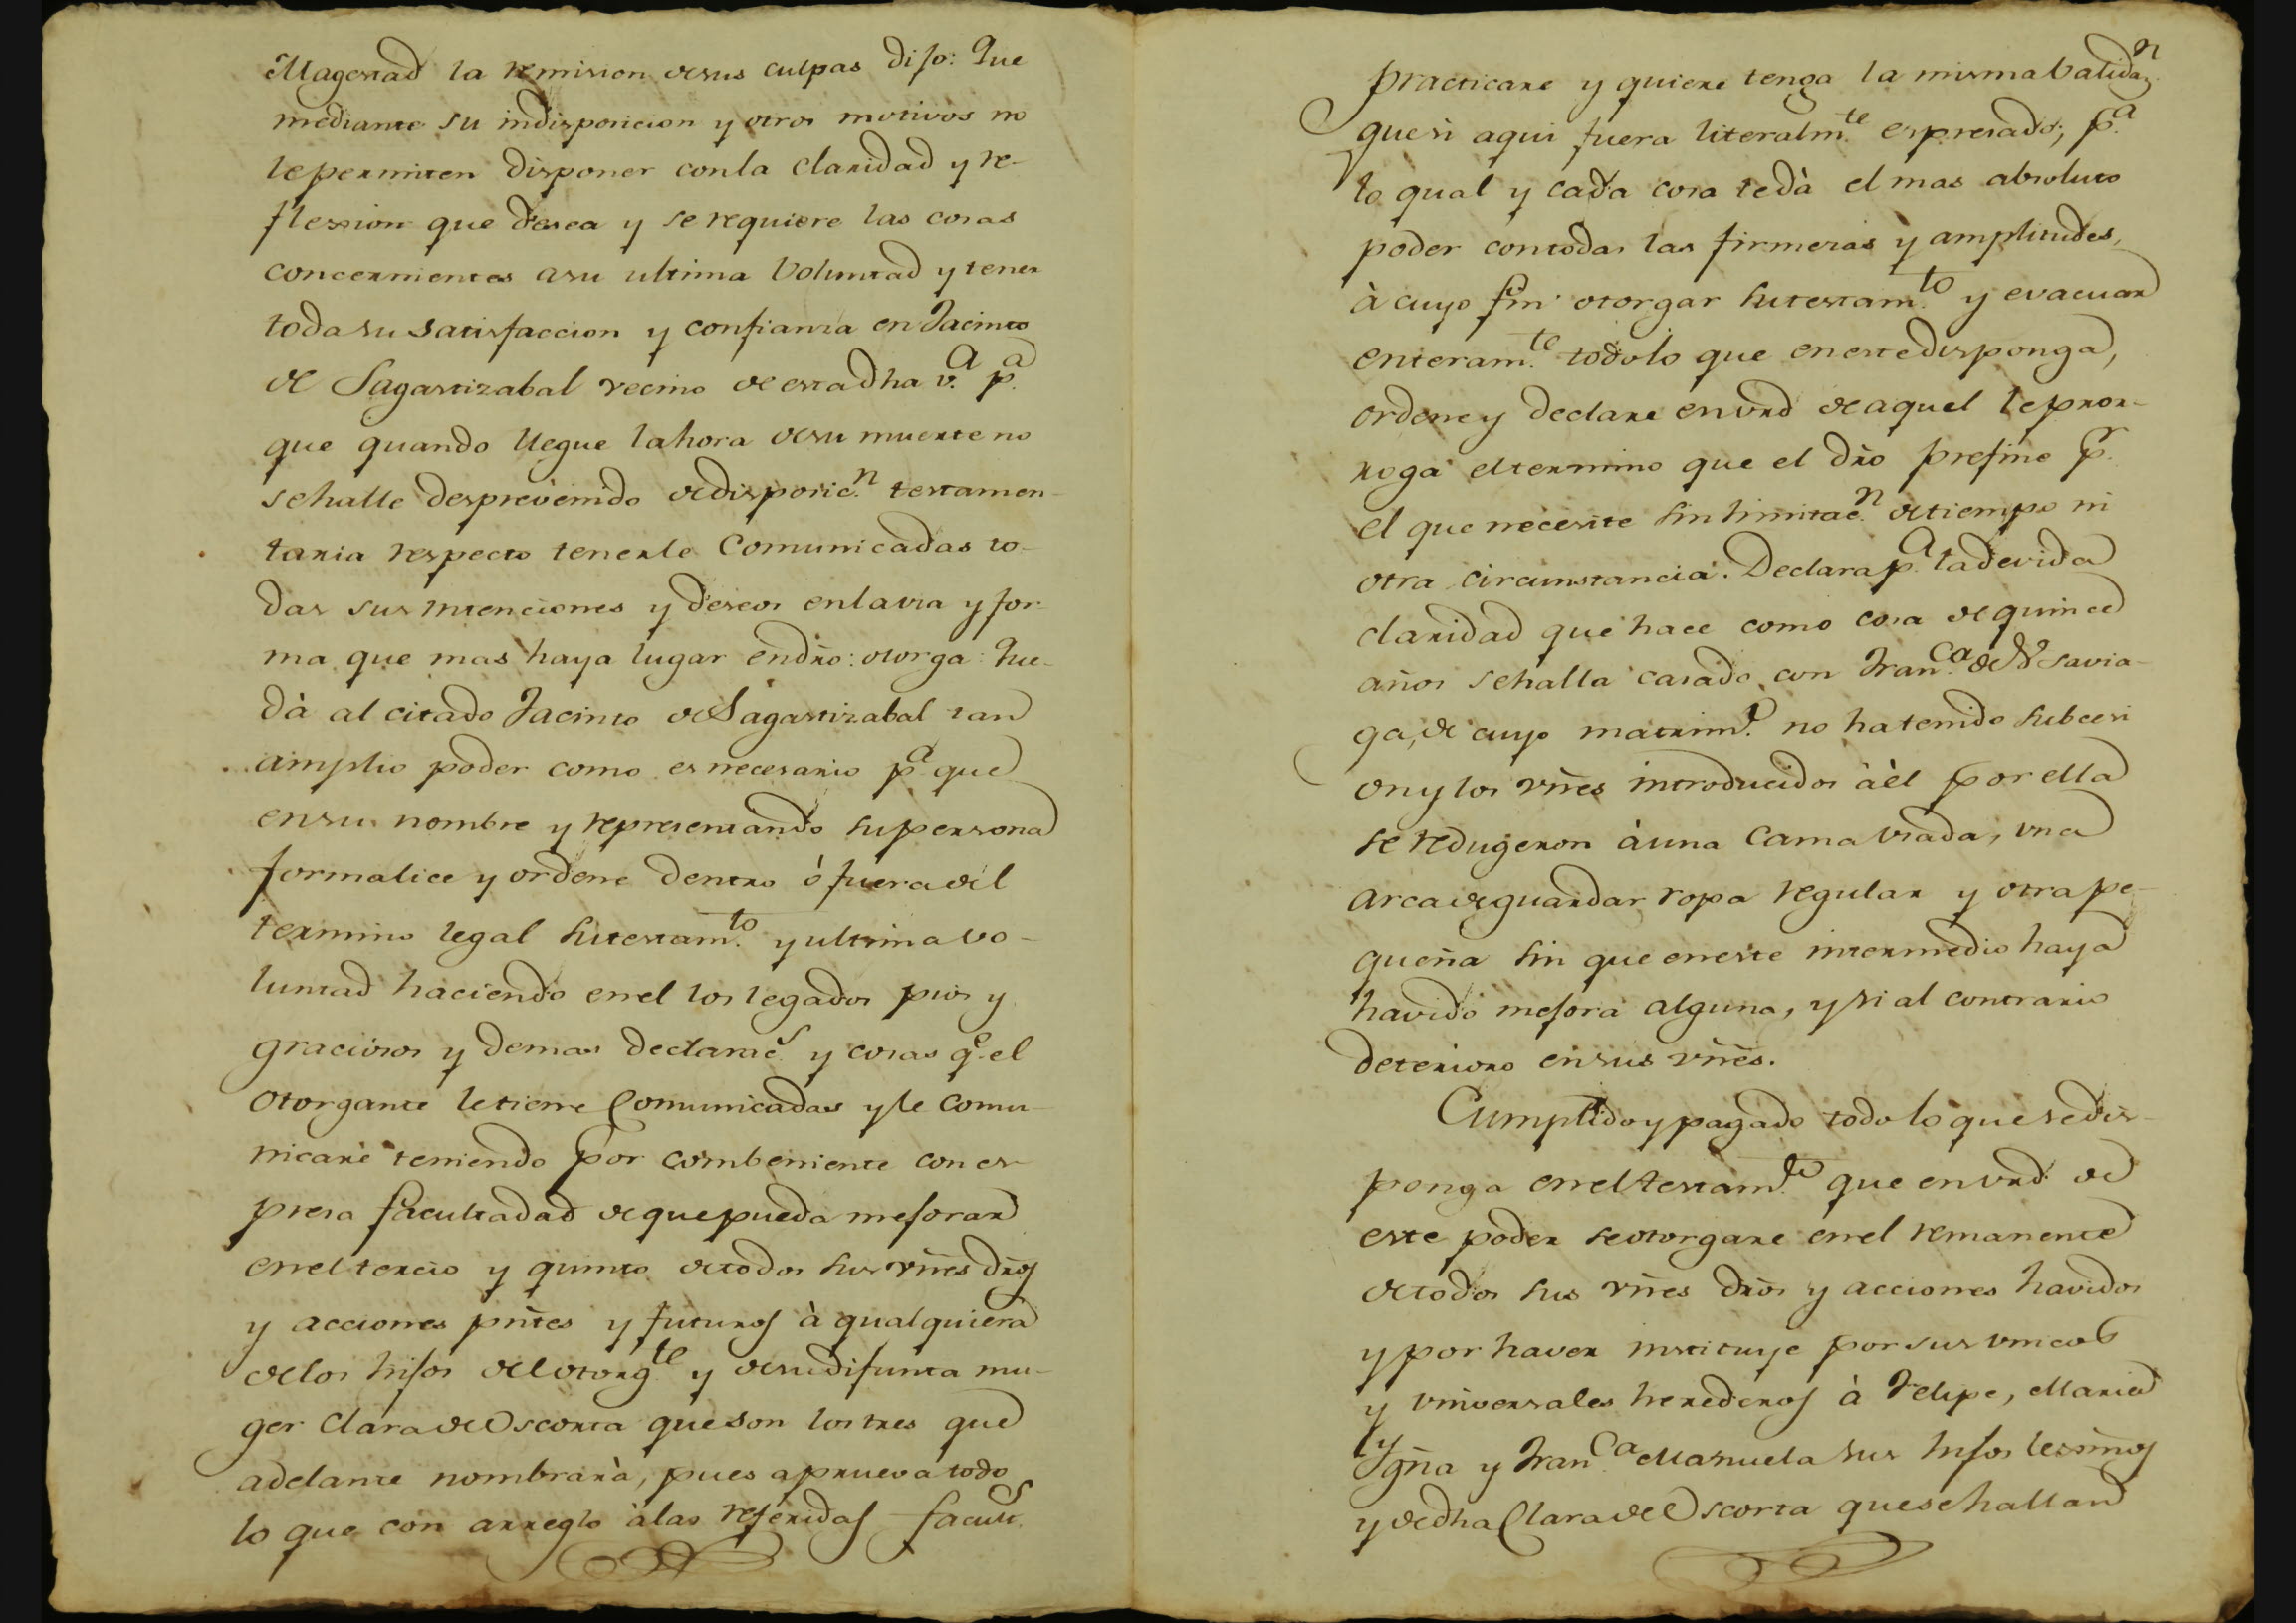 Magestad la remision de sus culpas dijo: Que
mediante su indisposicion y otros motivos no
le permiten disponer con la claridad y re-
flession que desea y se requiere las cosas
concernientes a su ultima Voluntad y tener
toda su satisfaccion y confianza en Jacinto
de Sagastizabal vecino de esta dha v.ª p.ª
que quando llegue la hora de su muerte no
se halle desprevenido de disposic.n testamen-
taria respecto tenerle Comunicadas to-
das sus intenciones y deseos en la via y for-
ma que mas haya lugar en dr̃o: otorga: Que
dà al citado Jacinto de Sagastizabal tan
amplio poder como es necesario p.ª que
en su nombre y representando su persona
formalice y ordene dentro ó fuera del
termino legal su testam.to y ultima vo-
luntad haciendo en el los legados pios y
graciosos y demas declarac.s y cosas q.e el
Otorgante le tiene Comunicadas y le comu-
nicarè teniendo por combeniente con es-
presa facultadad de que pueda mejorar
en el tercio y quinto de todos sus vñes dr̃os
y acciones pñtes y futuros à qualquiera
de los hijos del otorg.te y de su difunta mu-
ger Clara de Oscorta que son los tres que
adelante nombrarà, pues aprueva todo
lo que con arreglo à las referidas facult.s
practicare y quiere tenga la misma balidaz.n
que si aqui fuera literalm.te espresado; p.ª
lo qual y cada cosa le dà el mas absoluto
poder con todas las firmezas y amplitudes,
à cuyo fin otorgar su testam.to y evacuar
enteram.te todo lo que en este disponga,
ordene y declare en vrd de aquel le pror-
roga el termino que el dr̃o prefine p.r
el que necesite sin limitac.n de tiempo ni
otra circunstancia. Declara p.ª la devida
claridad que hace como cosa de quince
años se halla casado con Fran.ca de Vsavia-
ga, de cuyo matrim.o no ha tenido subcesi
on y los vñes introducidos à èl por ella
se redugeron à una cama vsada, vna
arca de guardar ropa regular y otra pe-
queña sin que en este intermedio haya
havido mejora alguna, y si al contrario
deterioro en sus vñes.
Cumplido y pagado todo lo que se dis-
ponga en el testam.to que en vrd de
este poder se otorgare en el remanente
de todos sus vñes dr̃os y acciones havidos
y por haver instituye por sus vnicos
y vniversales herederos à Felipe, Maria
Ygñia y Fran.ca Manuela sus hijos lexmos
y de dha Clara de Oscorta que se hallan